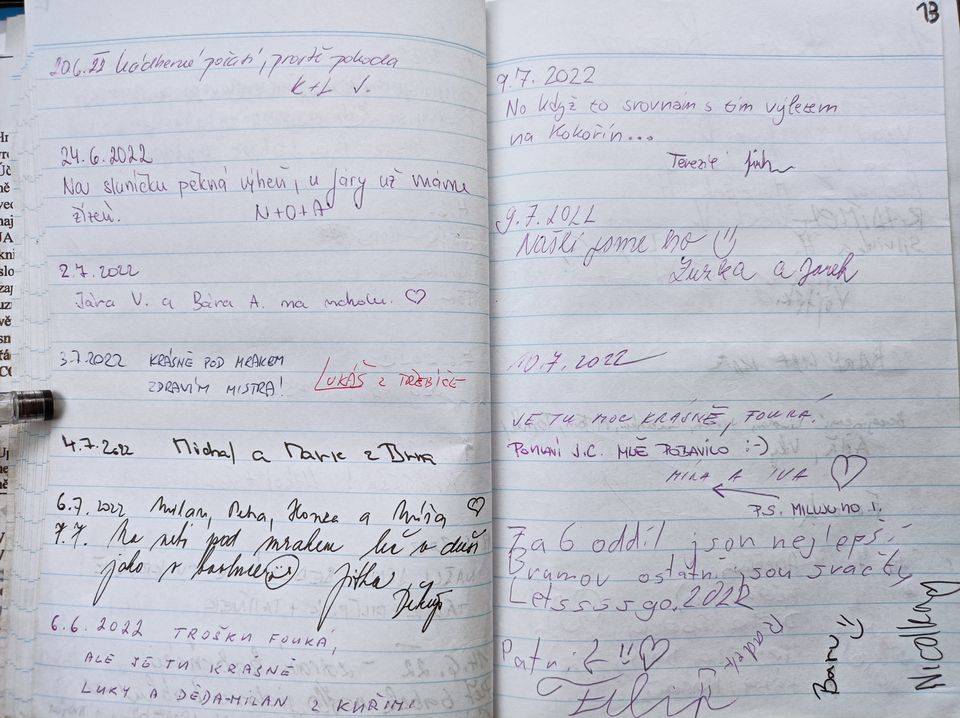 20.6.22 Nádherné počasí, prostě pohoda
K+L J.
24.6.2022
Na sluníčku pěkná výheň, u Járy už máme
žízeň. N+O+A
2.7.2022
Jára V. a Bára A. na vrcholu. ♡
3.7.2022 KRÁSNĚ POD MRAKEM
ZDRAVÍM MISTRA! LUKÁŠ z TŘEBÍČE
4.7.2022 Michal a Marie z Brna
6.7.2022 Milan, Petra, Honza a Míša ♡
7.7. Na síti pod mrakem leč v duši
jako v bavlnce Jitka
Děkuji
6.6.2022 TROŠKU FOUKÁ,
ALE JE TU KRÁSNĚ
LUKY A DĚDA-MILAN Z KUŘIMI
13
9.7.2022
No když to srovnám s tím výletem
na Kokořín...
Terezie
9.7.2022
Našli jsme ho
Zuzka a Jarek
10.7.2022
JE TU MOC KRÁSNĚ, FOUKÁ.
POVÍDÁNÍ J.C. MĚ POBAVILO :-)
MÍRA A IVA ♡
P.S. MILUJU HO I.
7 a 6 oddíl json nejlepší
Bramov ostatní jsou sračky
Letssssgo.2022
Radek
Filip
Baru